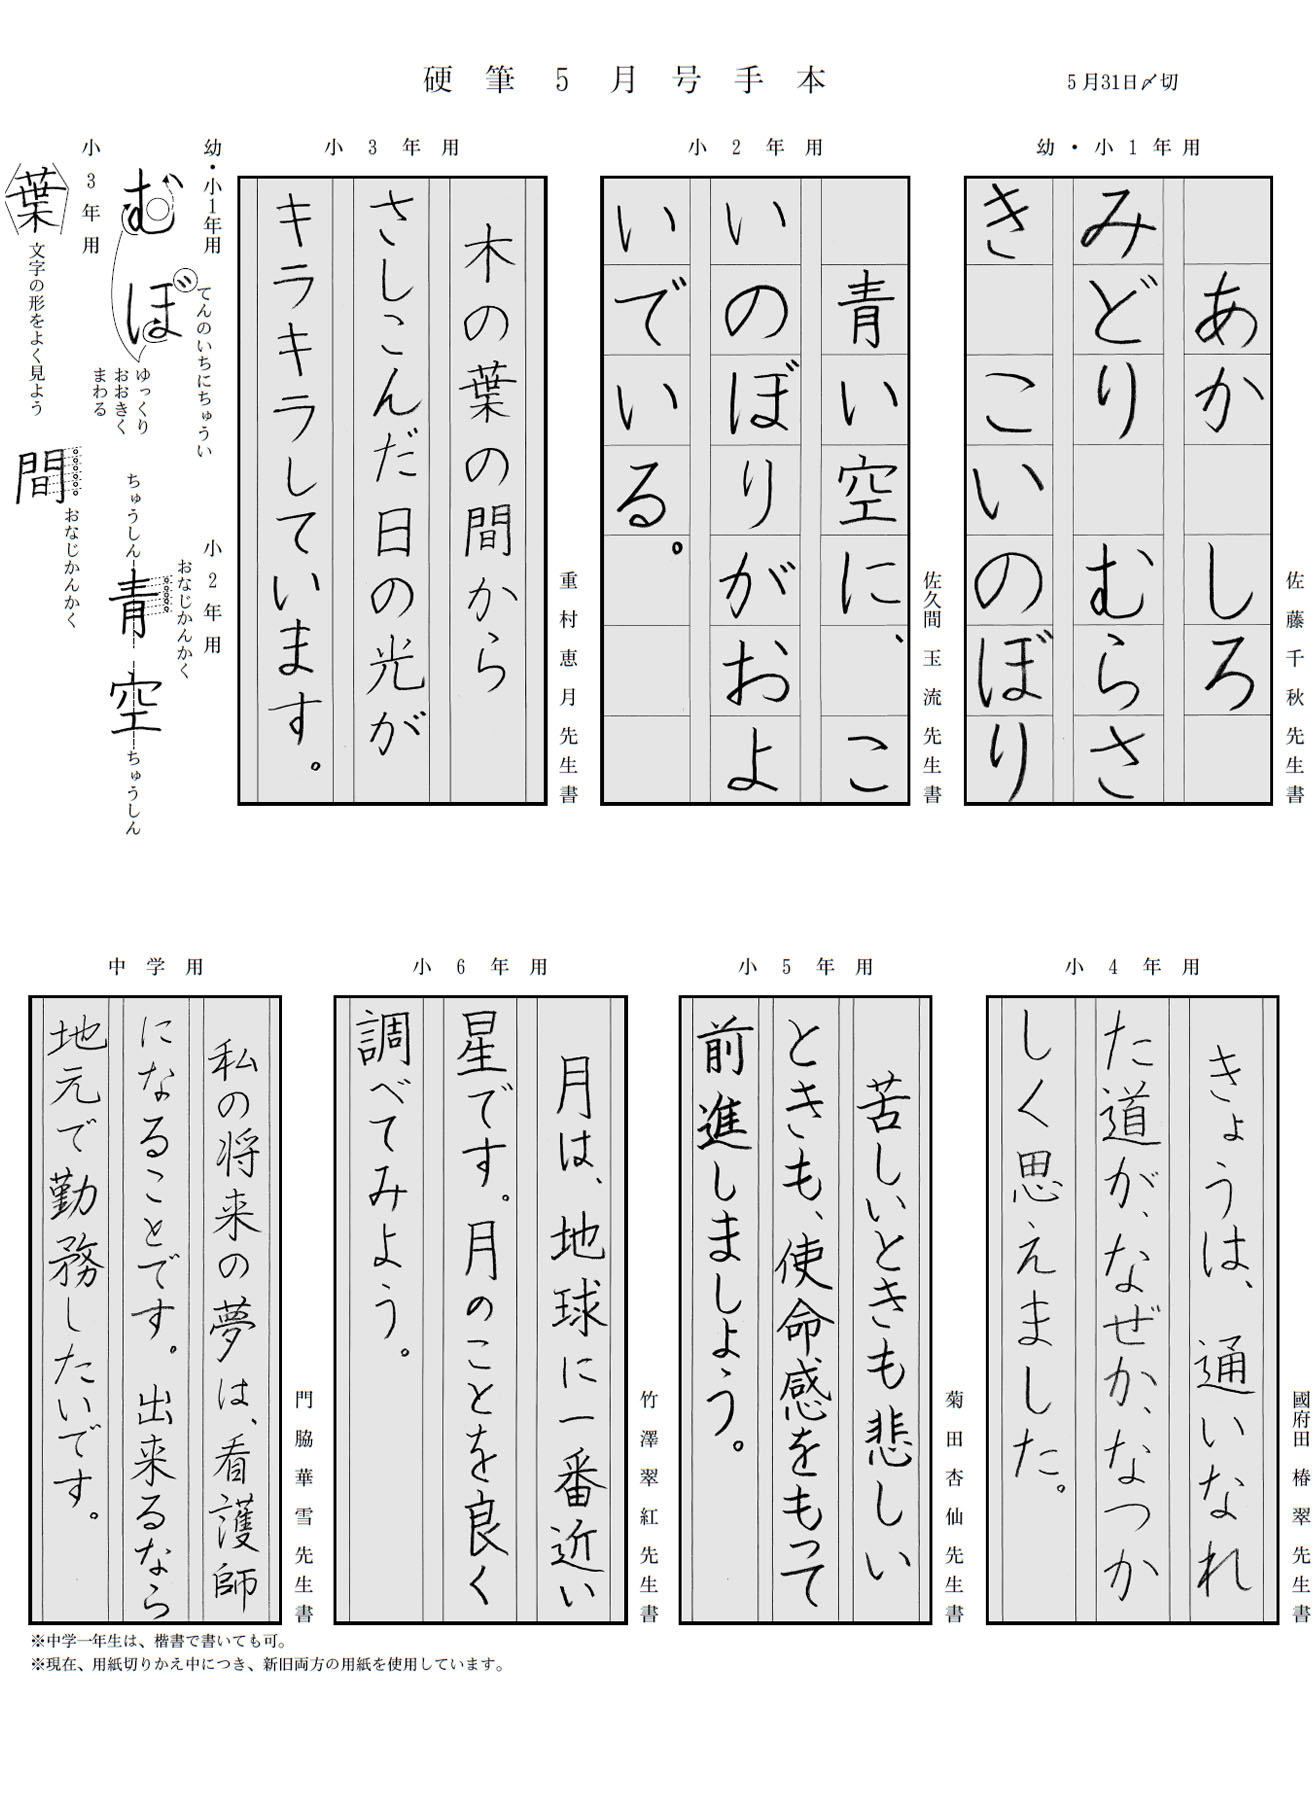 硬筆5月号手本
5月31日〆切
幼・小1年用
あか しろ
みどり むらさ
き こいのぼり
佐藤千秋先生書
小2年用
青い空に、こ
いのぼりがおよ
いでいる。
佐久間玉流先生書
小3年用
木の葉の間から
さしこんだ日の光が
キラキラしています。
重村恵月先生書
幼・小1年用
む
ぼ
てんのいちにちゅうい
ゆっくり
おおきく
まわる
小2年用
おなじかんかく
ちゅうしん
青空
ちゅうしん
小3年用
葉
文字の形をよく見よう
間
おなじかんかく
小4年用
きょうは、通いなれ
た道が、なぜか、なつか
しく思えました。
國府田椿翠先生書
小5年用
苦しいときも悲しい
ときも、使命感をもって
前進しましょう。
菊田杏仙先生書
小6年用
月は、地球に一番近い
星です。月のことを良く
調べてみよう。
竹澤翠紅先生書
中学用
私の将来の夢は、看護師
になることです。出来るなら
地元で勤務したいです。
門脇華雪先生書
※中学一年生は、楷書で書いても可。
※現在、用紙切りかえ中につき、新旧両方の用紙を使用しています。